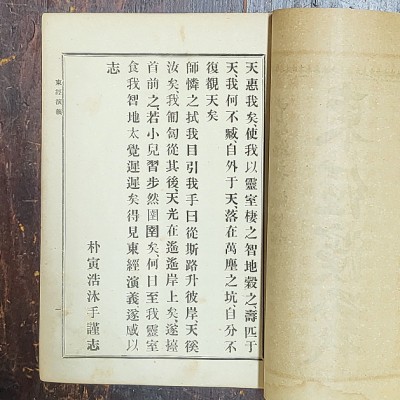 天惠我矣、使我以靈室棲之智地穀之、壽匹于
天、我何不臧、自外于天、落在萬塵之坑、自分不
復覩天矣
師憐之拭我目引我手曰從斯路升彼岸天徯
汝矣我匍匐從其後、天光在遙遙岸上矣、遂擡
首前之、若小兒習步然圉圉矣、何日至我靈室
食我智地太覺遲遲矣得見東經演義遂感以
志
朴寅浩沐手謹志
東經演義